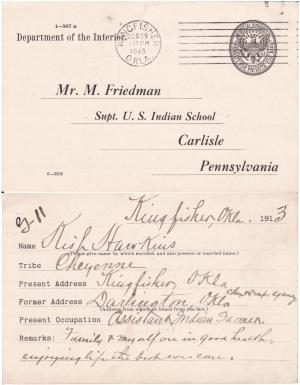 1-567 a
Department of the Interior.
KINGFISHER
DEC 29
1913
OKLA.
Mr. M. Friedman
Supt. U. S. Indian School
Carlisle
Pennsylvania
Kingfisher, Okla. 1913
Name Kish Hawkins
(Please give name by which enrolled and also present or married name.)
Tribe Cheyenne
Present Address Kingfisher, Okla
Former Address Darlington, Okla
(Address from which heard from you last.)
Present Occupation Assistant Indian Farmer.
Remarks: Family & myself are in good health.
enjoying life the best we can.